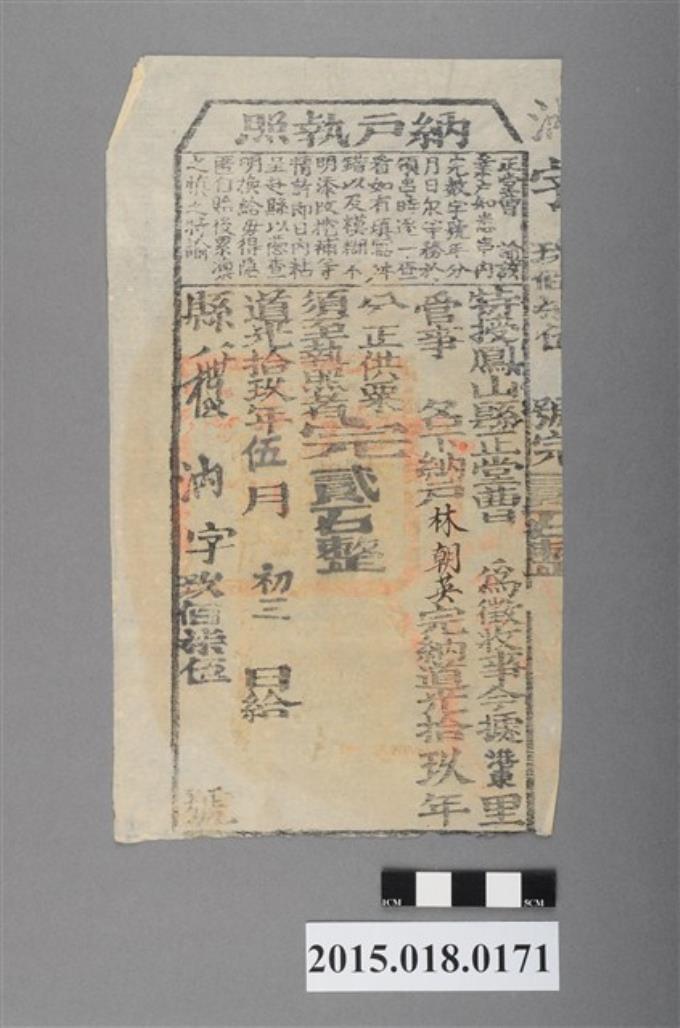 納戶執照
正堂曹 諭該
業戶如悉串內
完數字號年分
月日
領串時逐一查
看如有填寫
錯以及糢糊不
明添改挖補等
情許即日內粘
呈赴縣以憑查
明換給毋得隱
匿自貽後累凜
之慎之特諭
字 玖佰柒伍 號完貳石整
特授鳳山縣正堂曹 為徵收事今據港東里
管事 名下納戶林朝英完納道光拾玖年
分正供粟
須至執照者完貳石整
道光拾玖年伍月 初三 日給
縣 字玖佰柒伍 號
1CM 5CM
2015.018.0171